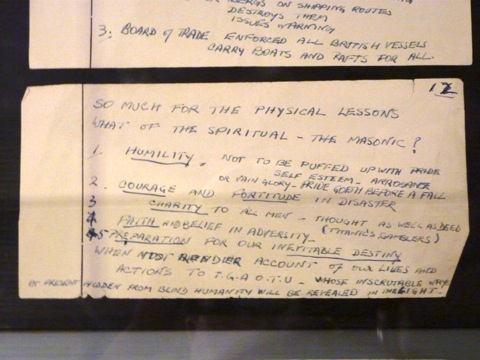 BERGS ON SHIPPING ROUTES
DESTROYS THEM
ISSUES WARNING
3: BOARD OF TRADE ENFORCED ALL BRITISH VESSELS
CARRY BOATS AND RAFTS FOR ALL.
12
SO MUCH FOR THE PHYSICAL LESSONS
WHAT OF THE SPIRITUAL - THE MASONIC?
1. HUMILITY. NOT TO BE PUFFED UP WITH PRIDE
SELF ESTEEM - ARROGANCE
OR VAIN GLORY - PRIDE GOETH BEFORE A FALL
2. COURAGE AND FORTITUDE IN DISASTER
3 CHARITY TO ALL MEN - THOUGHT AS WELL AS DEED
(TITANIC'S GAMBLERS)
4 FAITH AND BELIEF IN ADVERSITY -
5 PREPARATION FOR OUR INEVITABLE DESTINY
WHEN RENDER ACCOUNT OF OUR LIVES AND
ACTIONS TO T.G.A.O.T.U - WHOSE INSCRUTABLE WAYS
AT PRESENT HIDDEN FROM BLIND HUMANITY WILL BE REVEALED IN THE LIGHT.